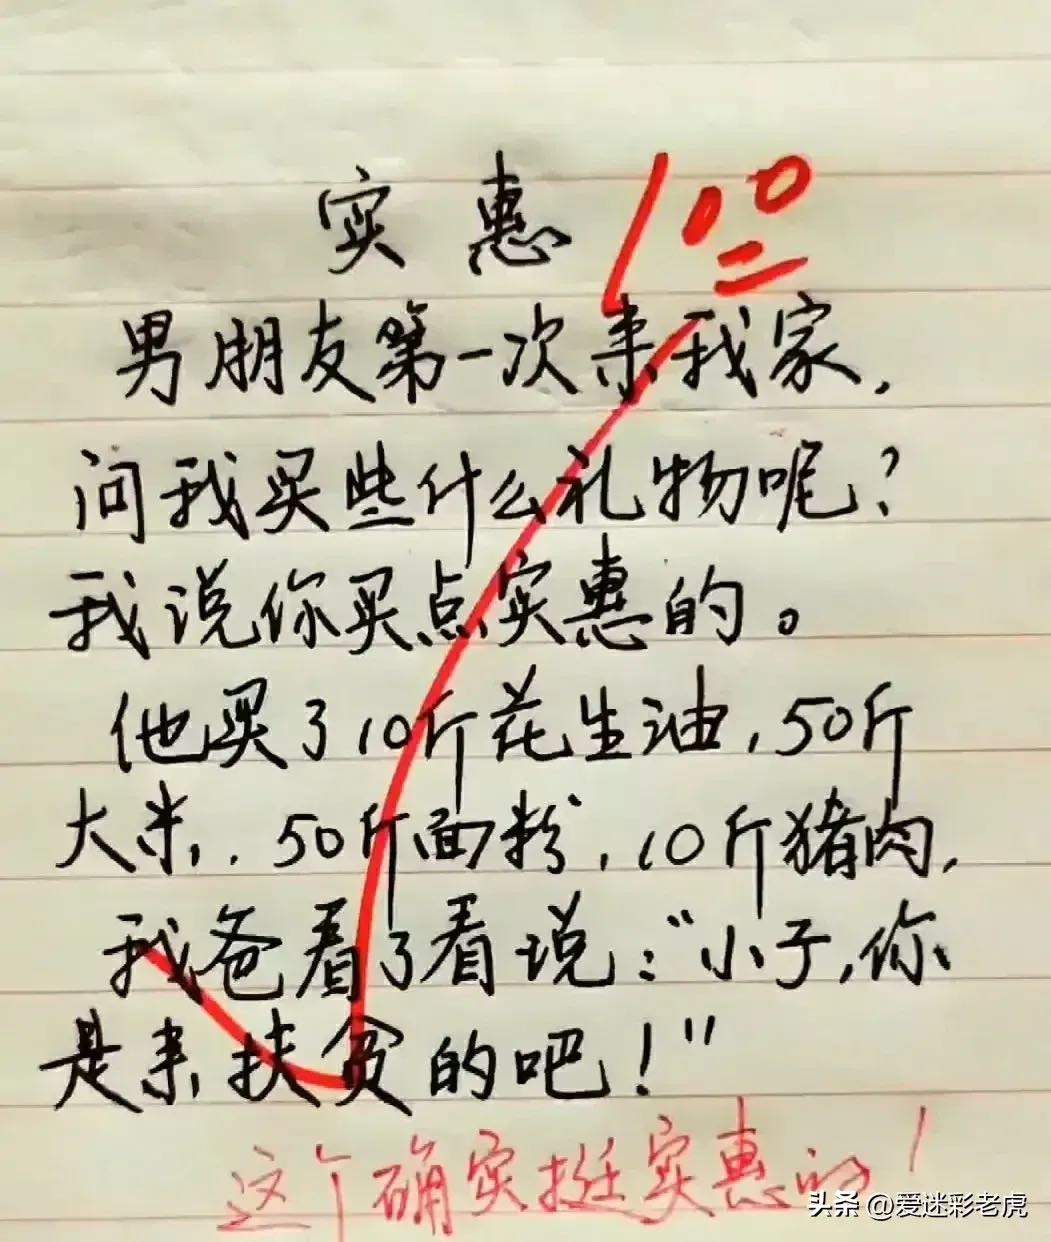 实惠
100
男朋友第一次来我家,
问我买些什么礼物呢?
我说你买点实惠的。
他买了10斤花生油,50斤
大米,.50斤面粉,10斤猪肉,
我爸看了看说:“小子,你
是来扶贫的吧!”
这个确实挺实惠的!
头条@爱迷彩老虎